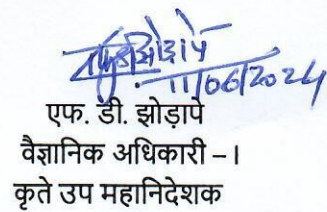 11/06/2024
एफ. डी. झोड़ापे
वैज्ञानिक अधिकारी – I
कृते उप महानिदेशक